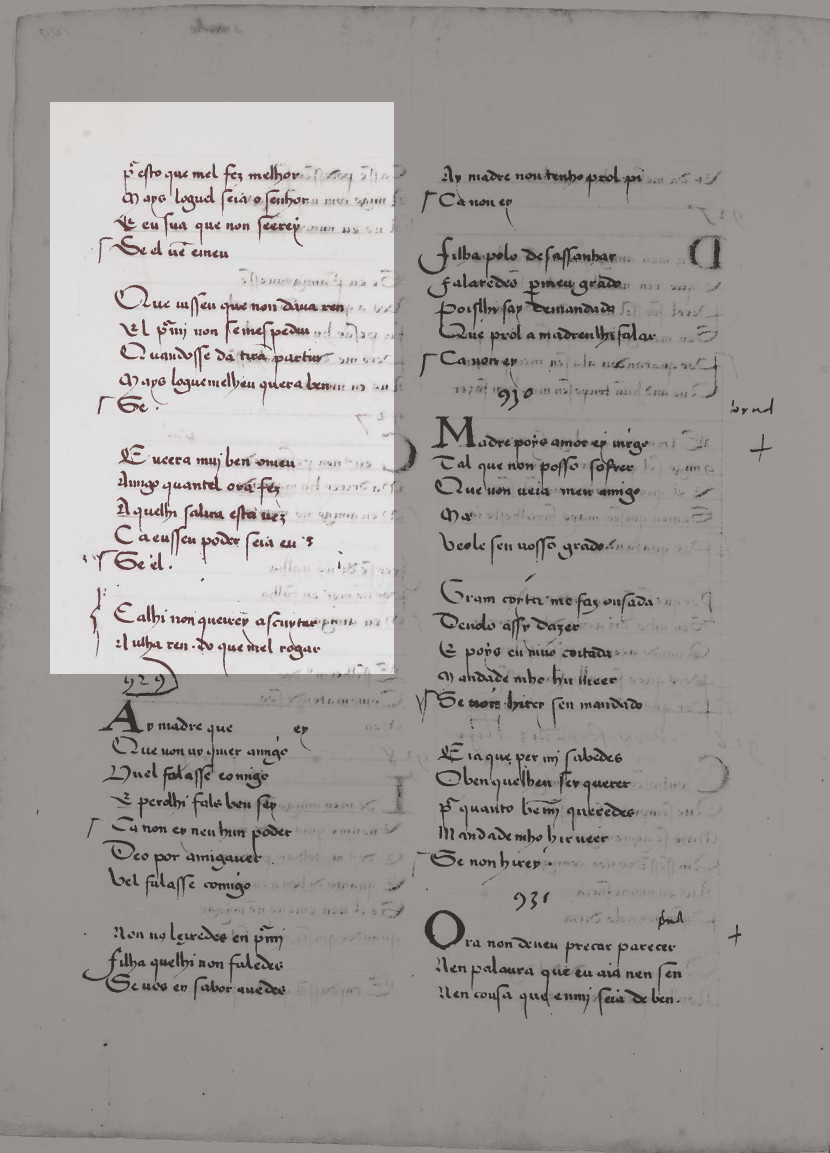 p̃ esto que mel fez melhor
Mays loguel seia o senhor
E eu sua que non seerey
Se el ue᷈ emeu
Que uisseu que non daua ren
El p̃mj non semespediu
Quandosse da tira᷈ partir
Mays loguemelheu quera ben
Se.
E ueera muj ben omeu
Amigo quantel ora fez
A quelhi saliua esta uez
Ca eusseu poder seia eu
Se el.
E alhi non queirey ascuytar
Nulha ren. do que mel rogar
929
Ay madre que ey
Que non uy quier amigo
Nuel falasse comigo
E perolhi fals ben sey
Ca non ey neu hun poder
Deo por amigauer
Vel falasse comigo
Non uo leixedes en p̃mj
Filha quelhi non faledes
Se uos en sabor auedes
Ay madre non tenho prol pi
Ca non ey
D
Filha polo desassanhar
Falaredes p meu grado
Poislhi say demandado
Que prol a madrenlhi falar
Ca non ey
930
Madre poys amor ey migo
Tal que non posso sofrer
Que non ueia meu amigo
Ma
Veole sen uosso grado
Gram coyta me faz ousada
Deuolo assy dizer
E poys eu uiuo coitada
Mandade mho hir ueer
Se hirey sen mandado
E ia que per mi sabedes
O ben quelheu sey querer
p̃ quanto be᷈ mj queredes
Mandade mho hir ueer
Se non hirey.
931
Ora non deueu preçar parecer
Nen palaura que eu aia nen sen
Nen cousa que enmj seia de ben.